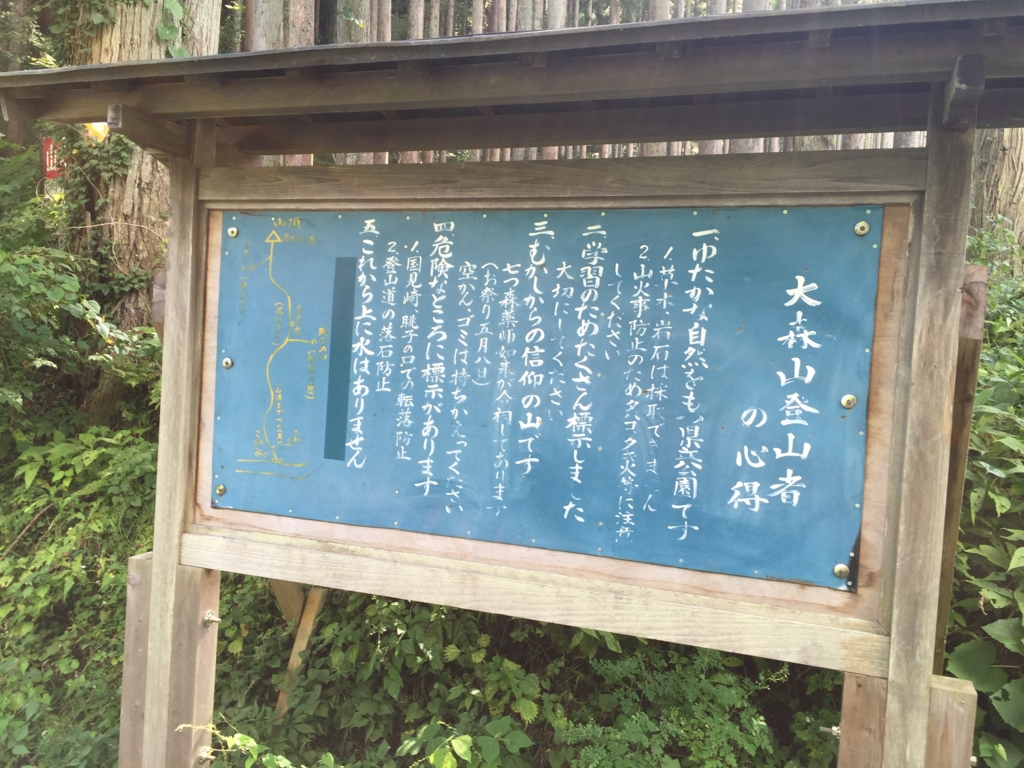 大森山登山者
の心得
一、ゆたかな自然をもつ県立公園です
1.草木、岩石は採取できません
2.山火事防止のためタバコ火等に注意
してください
二、学習のためたくさん標示しました
大切にしてください
三、むかしからの信仰の山です
七つ森薬師如来が合祠してあります
(お祭り五月八日)
空かん、ゴミは持ちかえってください
四、危険なところに標示があります
1.国見崎、眺子の口での転落防止
2.登山道の落石防止
五、これから上に水はありません
山頂